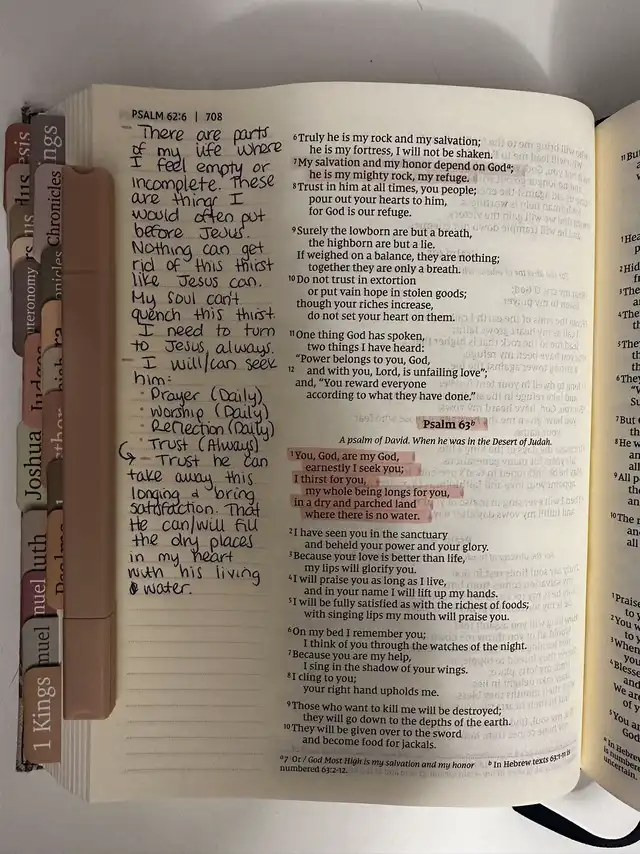 PSALM 62:6 | 708
- There are parts
of my life where
I feel empty or
incomplete. These
are things I
would often put
before Jesus.
Nothing can get
rid of this thirst
like Jesus can.
My soul can't
quench this thirst.
I need to turn
to Jesus, always.
- I will/can seek
him:
· Prayer (Daily)
· Worship (Daily)
· Reflection (Daily)
· Trust (Always)
- Trust he can
take away this
longing & bring
satisfaction. That
He can/will fill
the dry places
in my heart
with his living
water.
6 Truly he is my rock and my salvation;
he is my fortress, I will not be shaken.
7 My salvation and my honor depend on God a;
he is my mighty rock, my refuge.
8 Trust in him at all times, you people;
pour out your hearts to him,
for God is our refuge.
9 Surely the lowborn are but a breath,
the highborn are but a lie.
If weighed on a balance, they are nothing;
together they are only a breath.
10 Do not trust in extortion
or put vain hope in stolen goods;
though your riches increase,
do not set your heart on them.
11 One thing God has spoken,
two things I have heard:
"Power belongs to you, God,
12 and with you, Lord, is unfailing love";
and, "You reward everyone
according to what they have done."
Psalm 63 b
A psalm of David. When he was in the Desert of Judah.
1 You, God, are my God,
earnestly I seek you;
I thirst for you,
my whole being longs for you,
in a dry and parched land
where there is no water.
2 I have seen you in the sanctuary
and beheld your power and your glory.
3 Because your love is better than life,
my lips will glorify you.
4 I will praise you as long as I live,
and in your name I will lift up my hands.
5 I will be fully satisfied as with the richest of foods;
with singing lips my mouth will praise you.
6 On my bed I remember you;
I think of you through the watches of the night.
7 Because you are my help,
I sing in the shadow of your wings.
8 I cling to you;
your right hand upholds me.
9 Those who want to kill me will be destroyed;
they will go down to the depths of the earth.
10 They will be given over to the sword
and become food for jackals.
a 7 Or / God Most High is my salvation and my honor
b In Hebrew texts 63:1-11 is
numbered 63:2-12.
Chronicles
Joshua
1 Kings